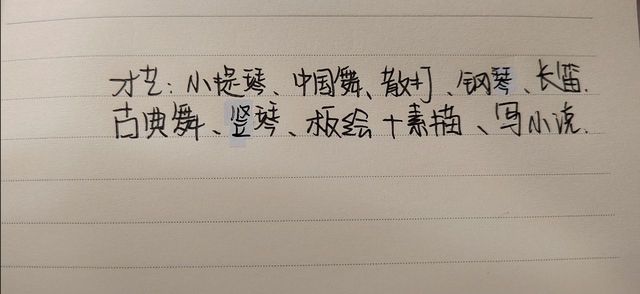 才艺：小提琴、中国舞、散打、钢琴、长笛.
古典舞、竖琴、板绘+素描、写小说.